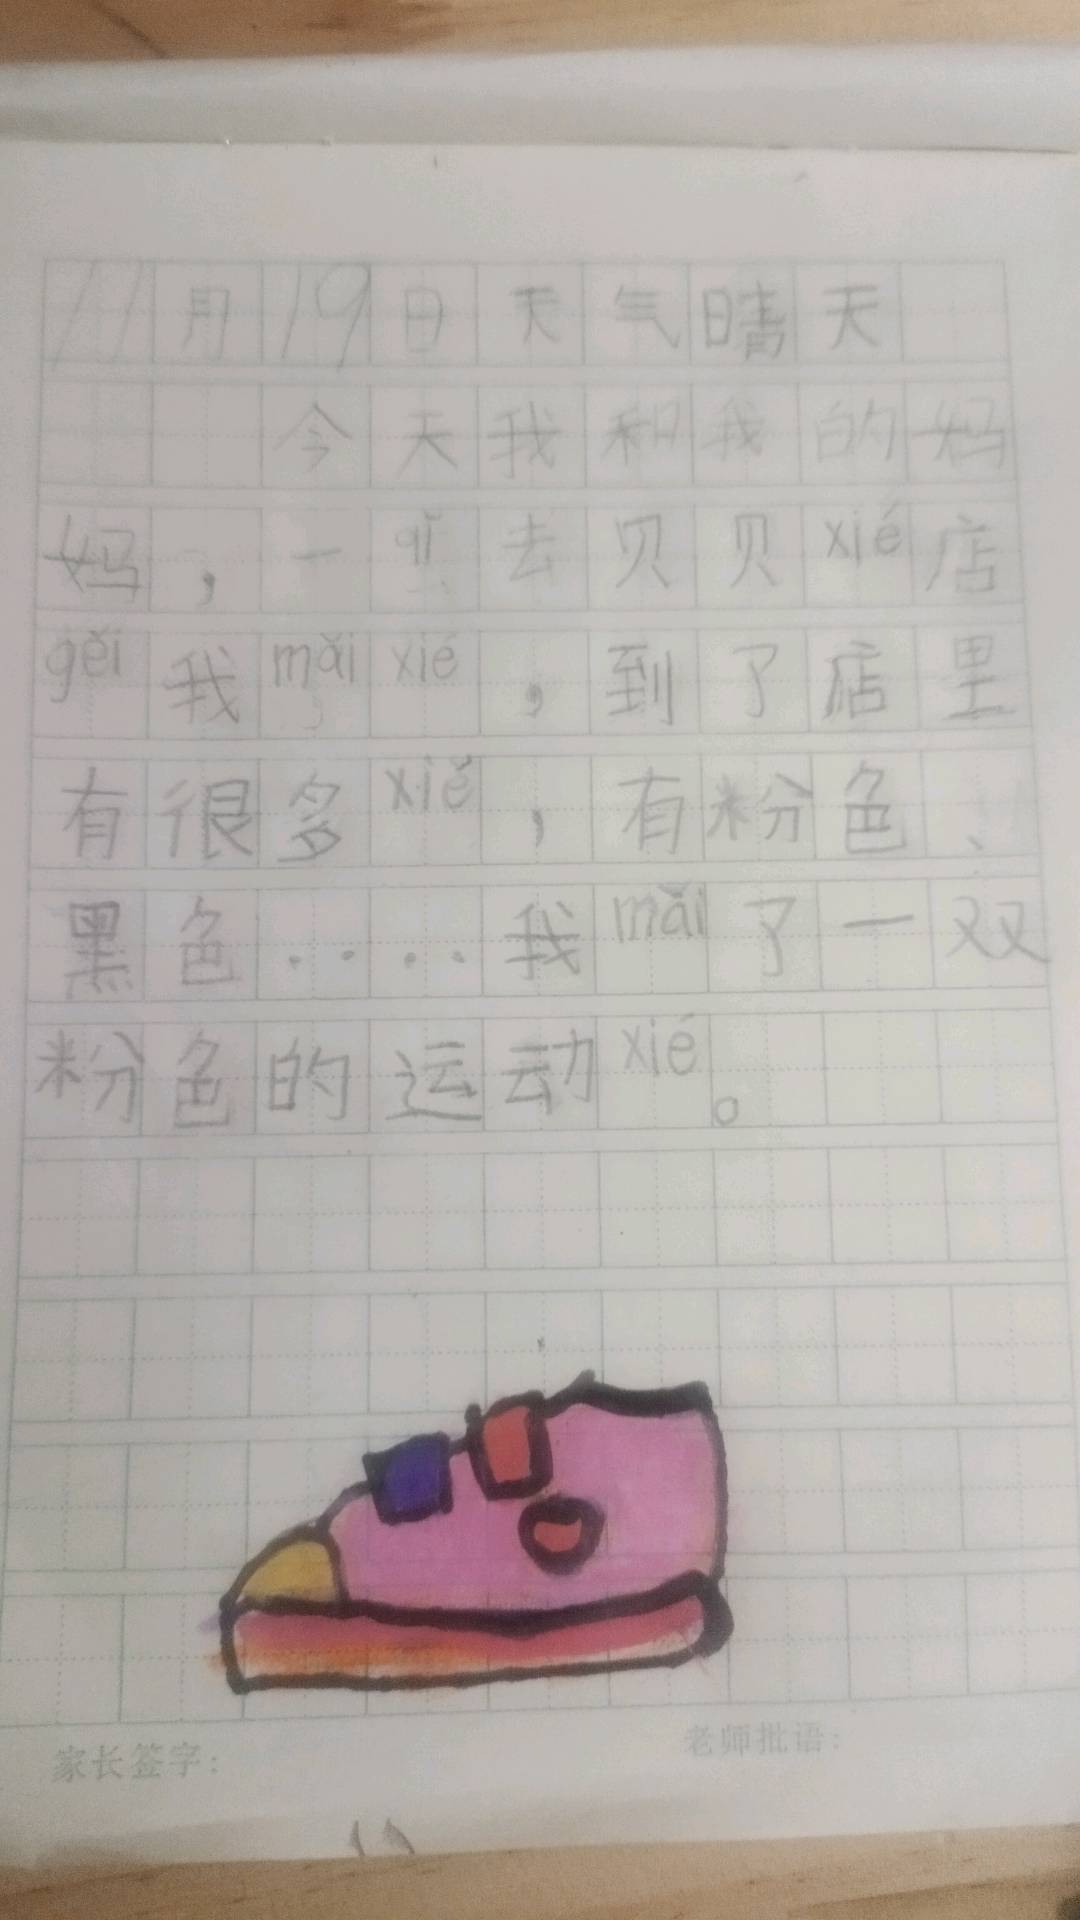 11月19日天气晴天
今天我和我的妈
妈，一qǐ去贝贝xié店
gěi我mǎi xié，到了店里
有很多xié，有粉色、
黑色....我mǎi了一双
粉色的运动xié。
家长签字：
老师批语：